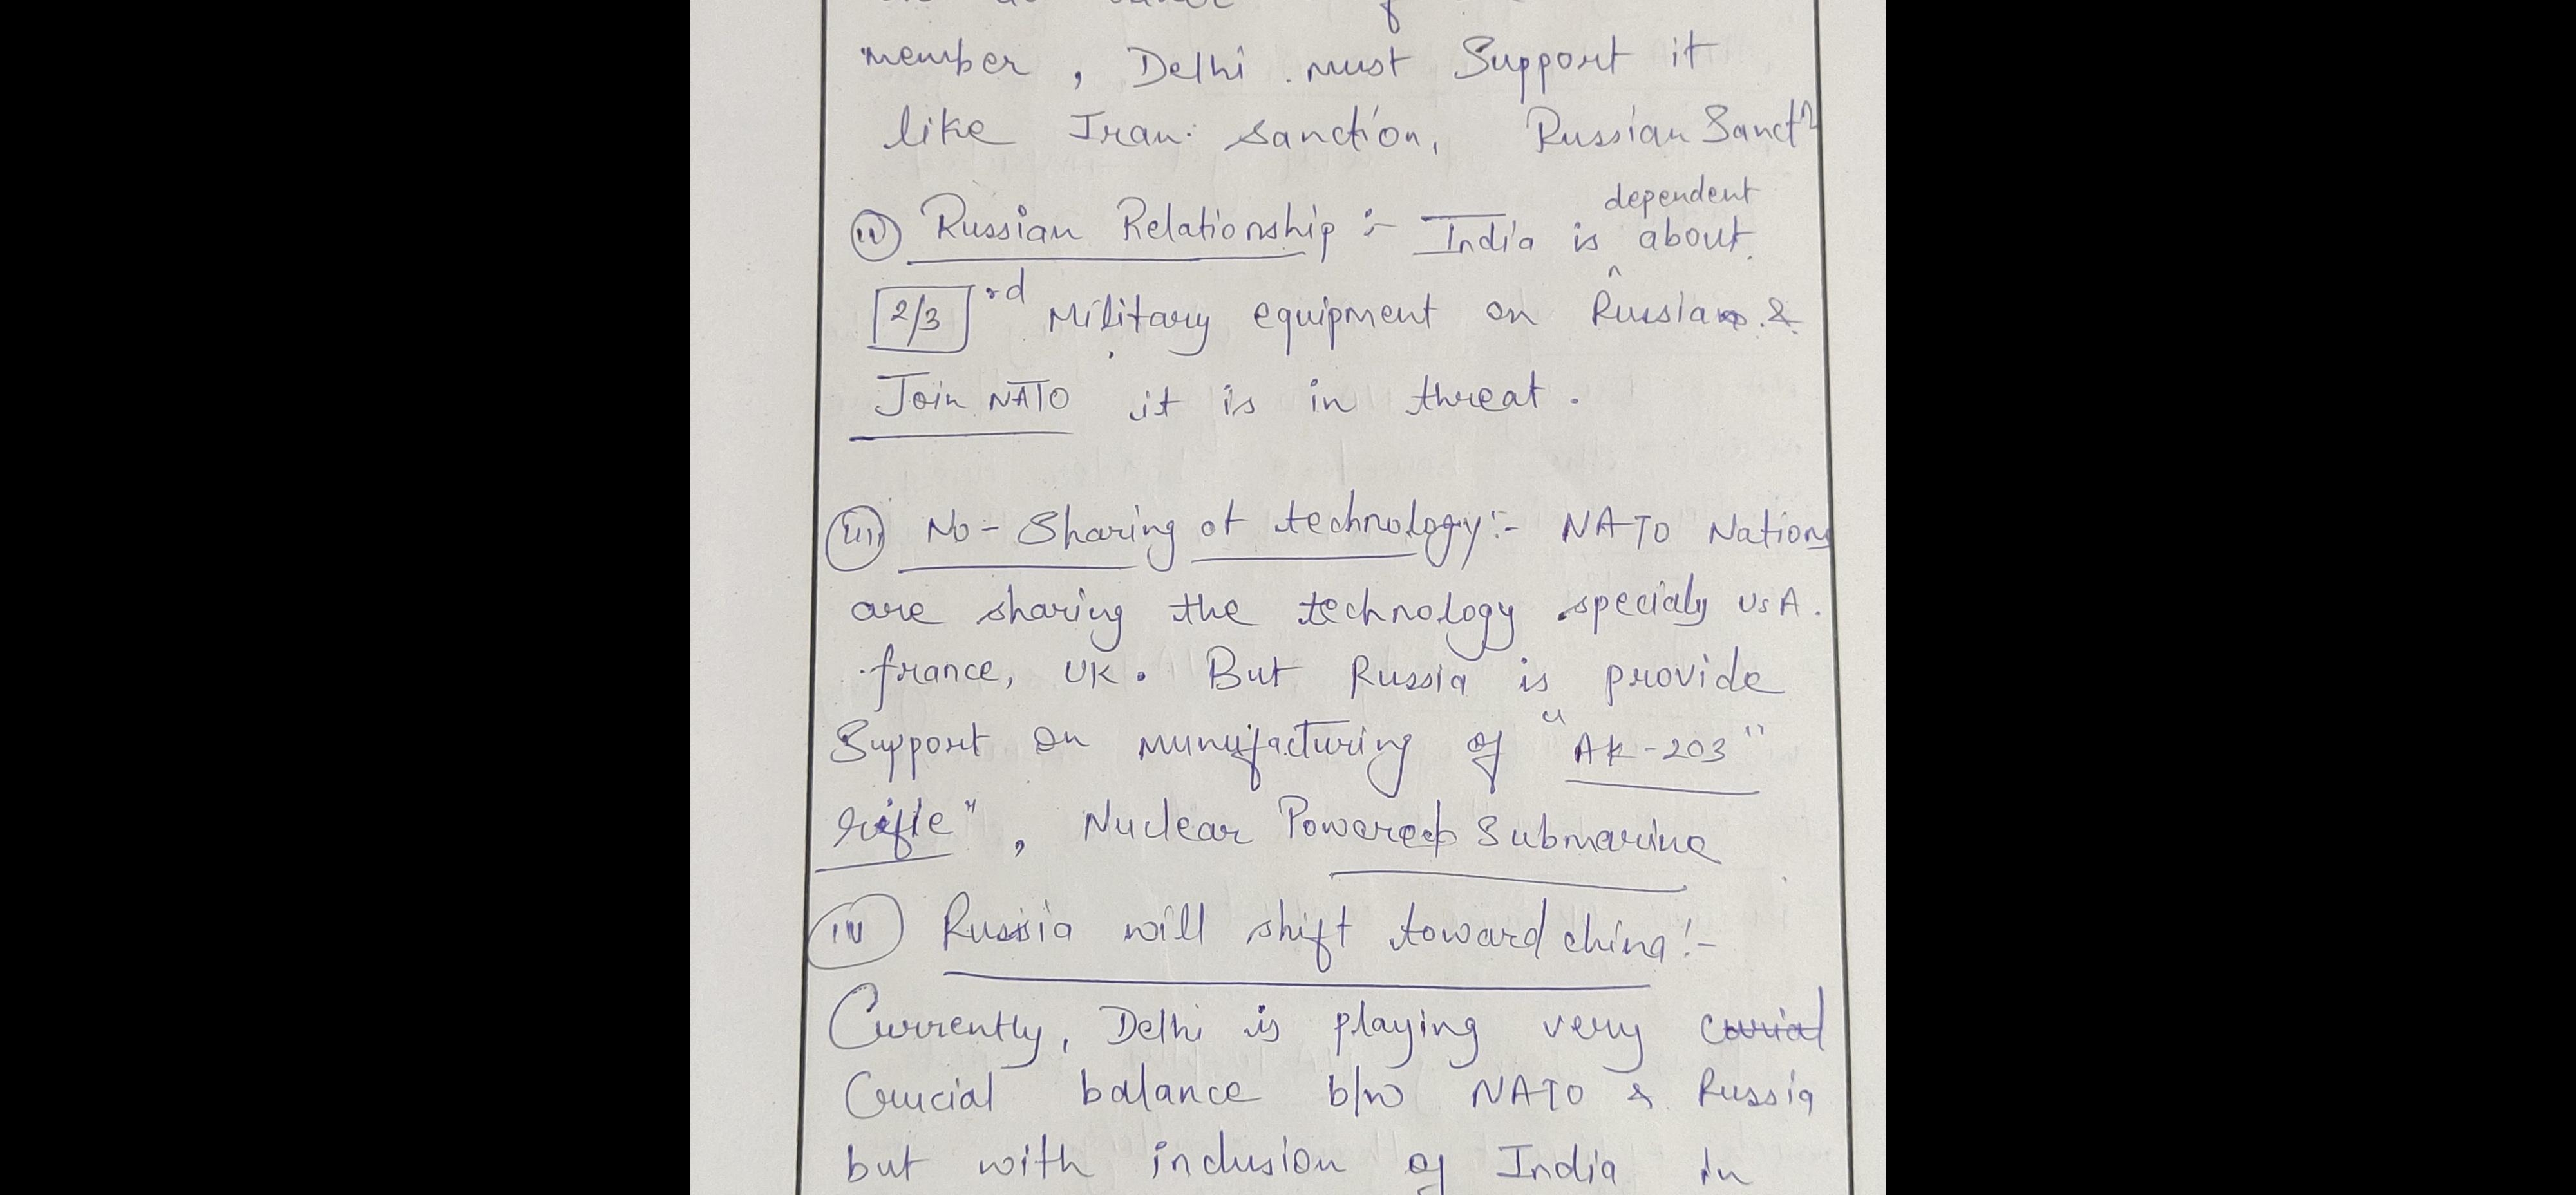 member, Delhi must Support it
like Iran sanction, Russian Sanctn
dependent
(ii) Russian Relationship :- India is ^ about
2/3 rd Military equipment on Russia &
Join NATO it is in threat.
(iii) No-Sharing of technology:- NATO Nations
are sharing the technology specialy USA.
france, UK. But Russia is provide
Support on munufacturing of "AK-203"
rifle", Nuclear Powered Submarine
(iv) Russia will shift toward china:-
Currently, Delhi is playing very
Crucial balance b/w NATO & Russia
but with inclusion of India in